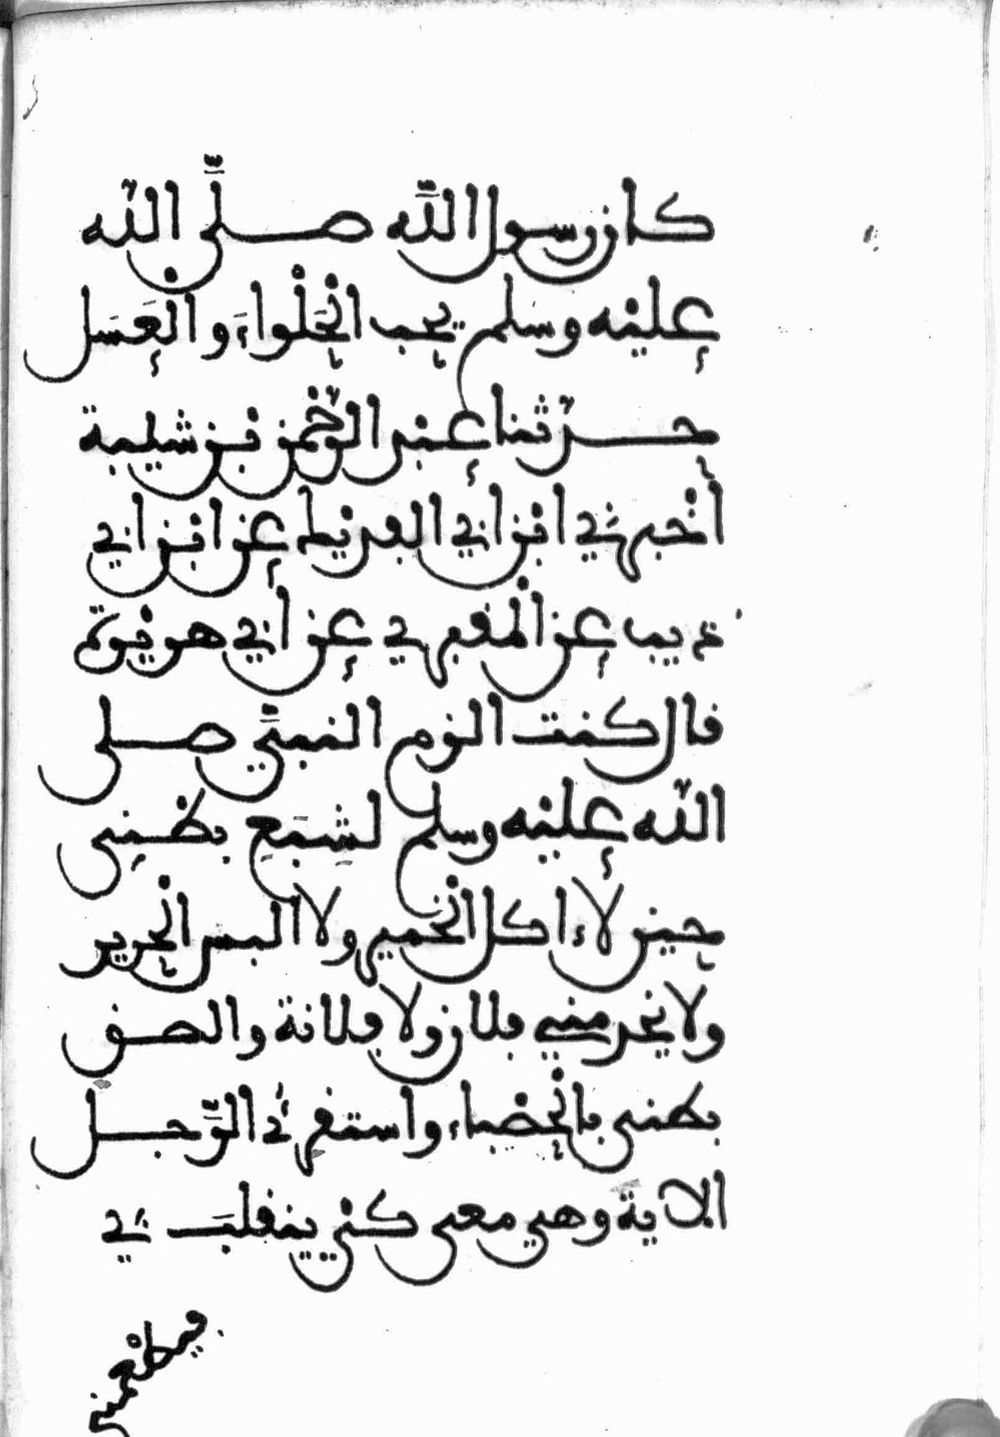 كان رسول الله صلى الله
عليه وسلم يحب الحلواء والعسل
حدثنا عبد الرحمن بن شيبة
أخبرني ابن ابي الفديك عن ابن ابي
ذيب عن المقبري عن أبي هريرة
قال كنت الزم النبي صلى
الله عليه وسلم لشبع بطني
حين لا ءاكل الخمير ولا البس الحرير
ولا يخدمني فلان ولا فلانة والصق
بطني بالحصباء واستقرئ الرجل
الاية وهي معي كي ينقلب بي
فيطعمني